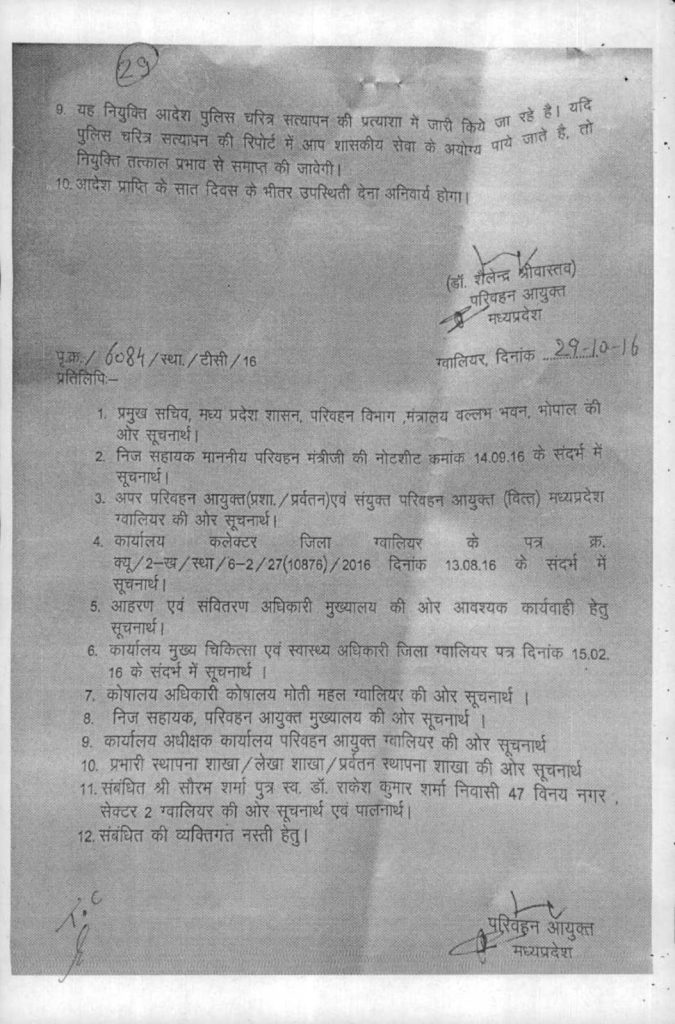 29
9. यह नियुक्ति आदेश पुलिस चरित्र सत्यापन की प्रत्याशा में जारी किये जा रहे है। यदि
पुलिस चरित्र सत्यापन की रिपोर्ट में आप शासकीय सेवा के अयोग्य पाये जाते है, तो
नियुक्ति तत्काल प्रभाव से समाप्त की जावेगी।
10. आदेश प्राप्ति के सात दिवस के भीतर उपस्थिती देना अनिवार्य होगा।
(डॉ. शैलेन्द्र श्रीवास्तव)
परिवहन आयुक्त
मध्यप्रदेश
पृ.क्र./6084/स्था./टीसी/16
ग्वालियर, दिनांक 29-10-16
प्रतिलिपिः–
1. प्रमुख सचिव, मध्य प्रदेश शासन, परिवहन विभाग ,मंत्रालय वल्लभ भवन, भोपाल की
ओर सूचनार्थ।
2. निज सहायक माननीय परिवहन मंत्रीजी की नोटशीट कमांक 14.09.16 के संदर्भ में
सूचनार्थ।
3. अपर परिवहन आयुक्त(प्रशा./प्रर्वतन)एवं संयुक्त परिवहन आयुक्त (वित्त) मध्यप्रदेश
ग्वालियर की ओर सूचनार्थ।
4. कार्यालय कलेक्टर जिला ग्वालियर के पत्र क्र.
क्यू/2–ख/स्था/6–2/27(10876)/2016 दिनांक 13.08.16 के संदर्भ में
सूचनार्थ।
5. आहरण एवं संवितरण अधिकारी मुख्यालय की ओर आवश्यक कार्यवाही हेतु
सूचनार्थ।
6. कार्यालय मुख्य चिकित्सा एवं स्वास्थ्य अधिकारी जिला ग्वालियर पत्र दिनांक 15.02.
16 के संदर्भ में सूचनार्थ ।
7. कोषालय अधिकारी कोषालय मोती महल ग्वालियर की ओर सूचनार्थ ।
8. निज सहायक, परिवहन आयुक्त मुख्यालय की ओर सूचनार्थ ।
9. कार्यालय अधीक्षक कार्यालय परिवहन आयुक्त ग्वालियर की ओर सूचनार्थ
10. प्रभारी स्थापना शाखा/लेखा शाखा/प्रर्वतन स्थापना शाखा की ओर सूचनार्थ
11. संबंधित श्री सौरभ शर्मा पुत्र स्व. डॉ. राकेश कुमार शर्मा निवासी 47 विनय नगर ,
सेक्टर 2 ग्वालियर की ओर सूचनार्थ एवं पालनार्थ।
12. संबंधित की व्यक्तिगत नस्ती हेतु।
T.C
परिवहन आयुक्त
मध्यप्रदेश